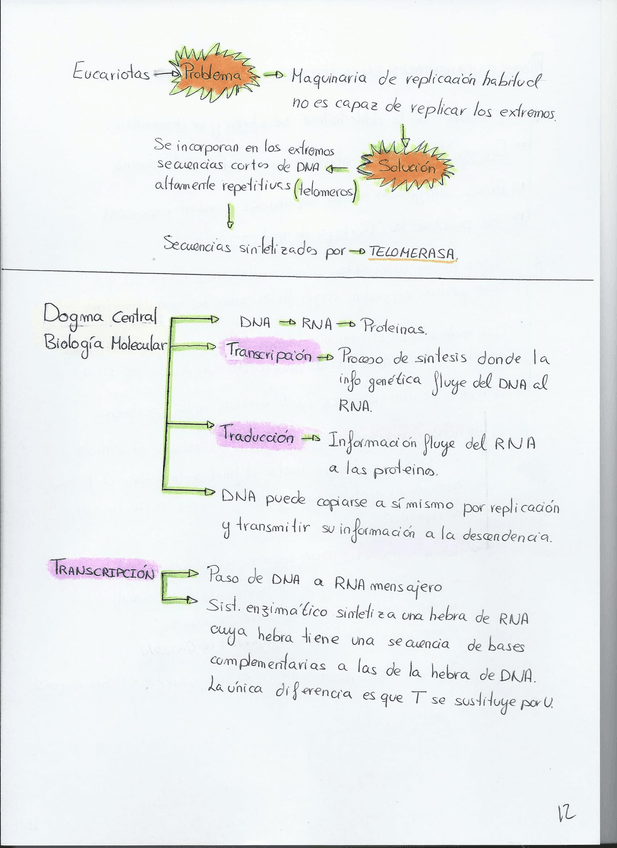 Eucariotas → Problema → Maquinaria de replicación habitual
no es capaz de replicar los extremos.
Solución
Se incorporan en los extremos
secuencias cortas de DNA
altamente repetitivas (telomeros)
Secuencias sintetizadas por → TELOMERASA.
Dogma Central
Biología Molecular
DNA → RNA → Proteinas.
Transcripción → Proceso de sintesis donde la
info genética fluye del DNA al
RNA.
Traducción → Información fluye del RNA
a las proteinas.
DNA puede copiarse a sí mismo por replicación
y transmitir su información a la descendencia.
TRANSCRIPCIÓN
Paso de DNA a RNA mensajero
Sist. enzimático sintetiza una hebra de RNA
cuya hebra tiene una secuencia de bases
complementarias a las de la hebra de DNA.
La única diferencia es que T se sustituye por U.
12